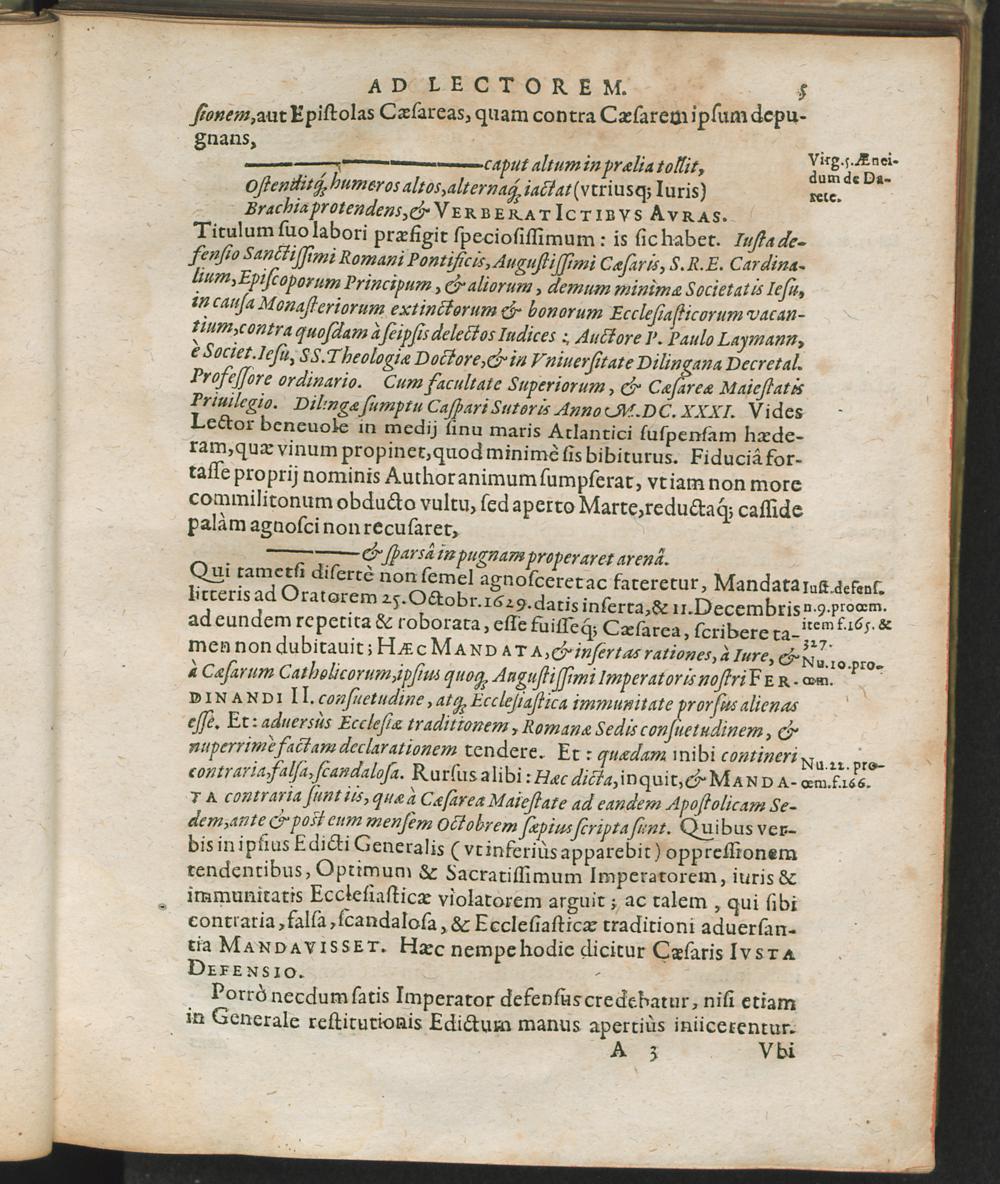 AD LECTOREM. 5
ſionem, aut Epiſtolas Cæſareas, quam contra Cæſarem ipſum depu-
gnans,
——— caput altum in prælia tollit,
Oſtenditq́; humeros altos, alternaq́; iactat (vtriusq; Iuris)
Brachia protendens, & VERBERAT ICTIBVS AVRAS.
Virg. 5. Ænei-
dum de Da-
rete.
Titulum ſuo labori præfigit ſpecioſiſſimum: is ſic habet. Iuſta de-
fenſio Sanctiſſimi Romani Pontificis, Auguſtiſſimi Cæſaris, S.R.E. Cardina-
lium, Epiſcoporum Principum, & aliorum, demum minimæ Societatis Ieſu,
in cauſa Monaſteriorum extinctorum & bonorum Eccleſiaſticorum vacan-
tium, contra quoſdam à ſeipſis delectos Iudices:, Auctore P. Paulo Laymann,
è Societ. Ieſu, SS. Theologiæ Doctore, & in Vniuerſitate Dilingana Decretal.
Profeſſore ordinario. Cum facultate Superiorum, & Cæſareæ Maieſtatis
Priuilegio. Dilingæ ſumptu Caſpari Sutoris Anno M. DC. XXXI. Vides
Lector beneuole in medij ſinu maris Atlantici ſuſpenſam hæde-
ram, quæ vinum propinet, quod minimè ſis bibiturus. Fiduciâ for-
taſſe proprij nominis Author animum ſumpſerat, vt iam non more
commilitonum obducto vultu, ſed aperto Marte, reductaq́; caſſide
palàm agnoſci non recuſaret,
——— & ſparsâ in pugnam properaret arenâ.
Qui tametſi diſertè non ſemel agnoſceret ac fateretur, Mandata
litteris ad Oratorem 25. Octobr. 1629. datis inſerta, & 11. Decembris
ad eundem repetita & roborata, eſſe fuiſſeq́; Cæſarea, ſcribere ta-
men non dubitauit; HÆC MANDATA, & inſertas rationes, à Iure, &
à Cæſarum Catholicorum, ipſius quoq́; Auguſtiſſimi Imperatoris noſtri FER-
DINANDI II. conſuetudine, atq́; Eccleſiaſtica immunitate prorſus alienas
eſſe. Et: aduersùs Eccleſiæ traditionem, Romanæ Sedis conſuetudinem, &
nuperrimè factam declarationem tendere. Et: quædam inibi contineri
contraria, falſa, ſcandaloſa. Rurſus alibi: Hæc dicta, inquit, & MANDA-
TA contraria ſunt iis, quæ à Cæſarea Maieſtate ad eandem Apoſtolicam Se-
dem, ante & poſt eum menſem Octobrem ſæpius ſcripta ſunt. Quibus ver-
bis in ipſius Edicti Generalis (vt inferiùs apparebit) oppreſſionem
tendentibus, Optimum & Sacratiſſimum Imperatorem, iuris &
immunitatis Eccleſiaſticæ violatorem arguit; ac talem, qui ſibi
contraria, falſa, ſcandaloſa, & Eccleſiaſticæ traditioni aduerſan-
tia MANDAVISSET. Hæc nempe hodie dicitur Cæſaris IVSTA
DEFENSIO.
Iuſt. defenſ.
n. 9. proœm.
item f. 165. &
327.
Nu. 10. pro-
œm.
Nu. 22. pro-
œm. f. 166.
Porrò necdum ſatis Imperator defenſus credebatur, niſi etiam
in Generale reſtitutionis Edictum manus apertiùs iniicerentur.
A 3 Vbi